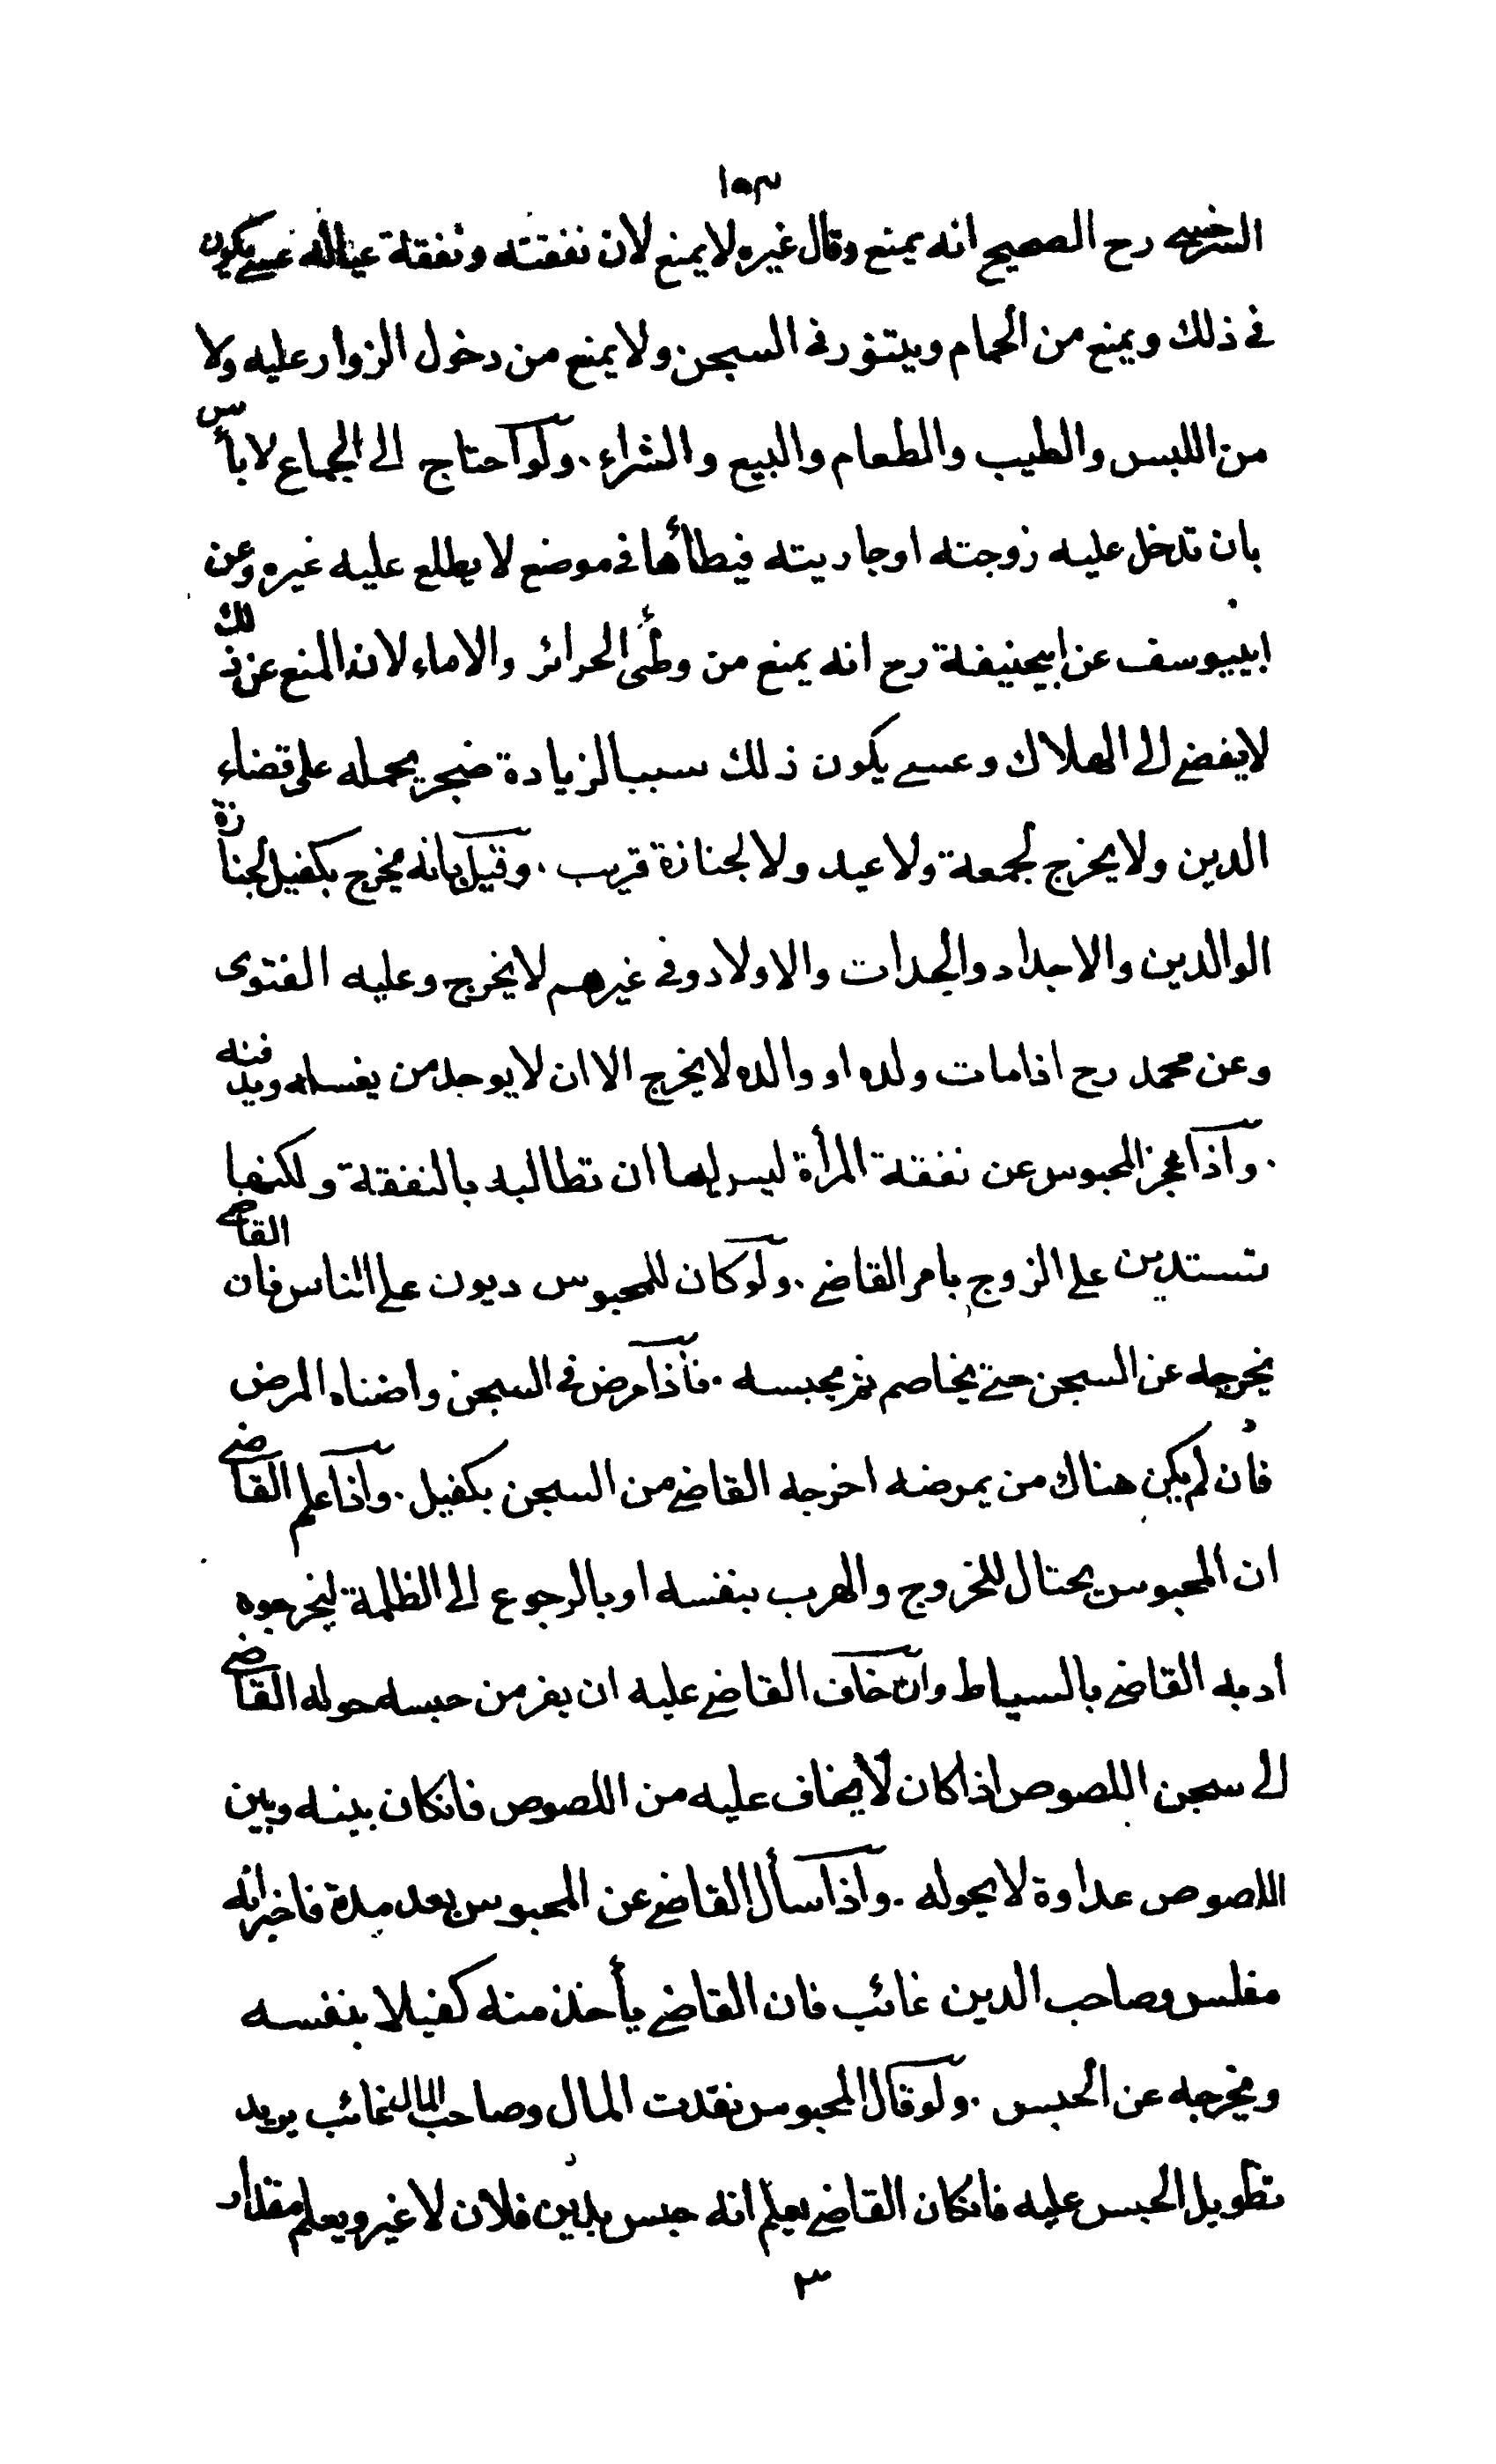 ١٥٣
السرخسي رح الصحيح انه يمنع وقال غيره لا يمنع لان نفقته ونفقة عياله عسى يكون
في ذلك ويمنع من الحمام ويتنور في السجن ولا يمنع من دخول الزوار عليه ولا
من اللبس والطيب والطعام والبيع والشراء . ولو احتاج الى الجماع لا بأس
بان تدخل عليه زوجته او جاريته فيطأها في موضع لا يطلع عليه غيره وعن
ابييوسف عن ابيحنيفة رح انه يمنع من وطئ الحرائر والاماء لان المنع عن ذلك
لا يفضي الى الهلاك وعسى يكون ذلك سببا لزيادة ضجر يحمله على قضاء
الدين ولا يخرج لجمعة ولا عيد ولا لجنازة قريب . وقيل بانه يخرج بكفيل لجنازة
الوالدين والاجداد والجدات والاولاد وفي غيرهم لا يخرج وعليه الفتوى
وعن محمد رح اذا مات ولده او والده لا يخرج الا ان لا يوجد من يغسله ويدفنه
. واذا عجز المحبوس عن نفقة المرأة ليس لها ان تطالبه بالنفقة ولكنها
تستدين على الزوج بامر القاضي . ولو كان للمحبوس ديون على الناس فان القاضي
يخرجه عن السجن حتى يخاصم ثم يحبسه . فاذا مرض في السجن واضناه المرض
فان لم يكن هناك من يمرضه اخرجه القاضي من السجن بكفيل . واذا علم القاضي
ان المحبوس يحتال للخروج والهرب بنفسه او بالرجوع الى الظلمة ليخرجوه
أدبه القاضي بالسياط وان خاف القاضي عليه ان يفر من حبسه حوله القاضي
الى سجن اللصوص اذا كان لا يخاف عليه من اللصوص فانكان بينه وبين
اللصوص عداوة لا يحوله . واذا سأل القاضي عن المحبوس بعد مدة فاخبر انه
مفلس وصاحب الدين غائب فان القاضي يأخذ منه كفيلا بنفسه
ويخرجه عن الحبس . ولو قال المحبوس نقدت المال وصاحب المال غائب يريد
تطويل الحبس عليه فانكان القاضي يعلم انه حبس بدين فلان لا غير ويعلم مقدار
٣